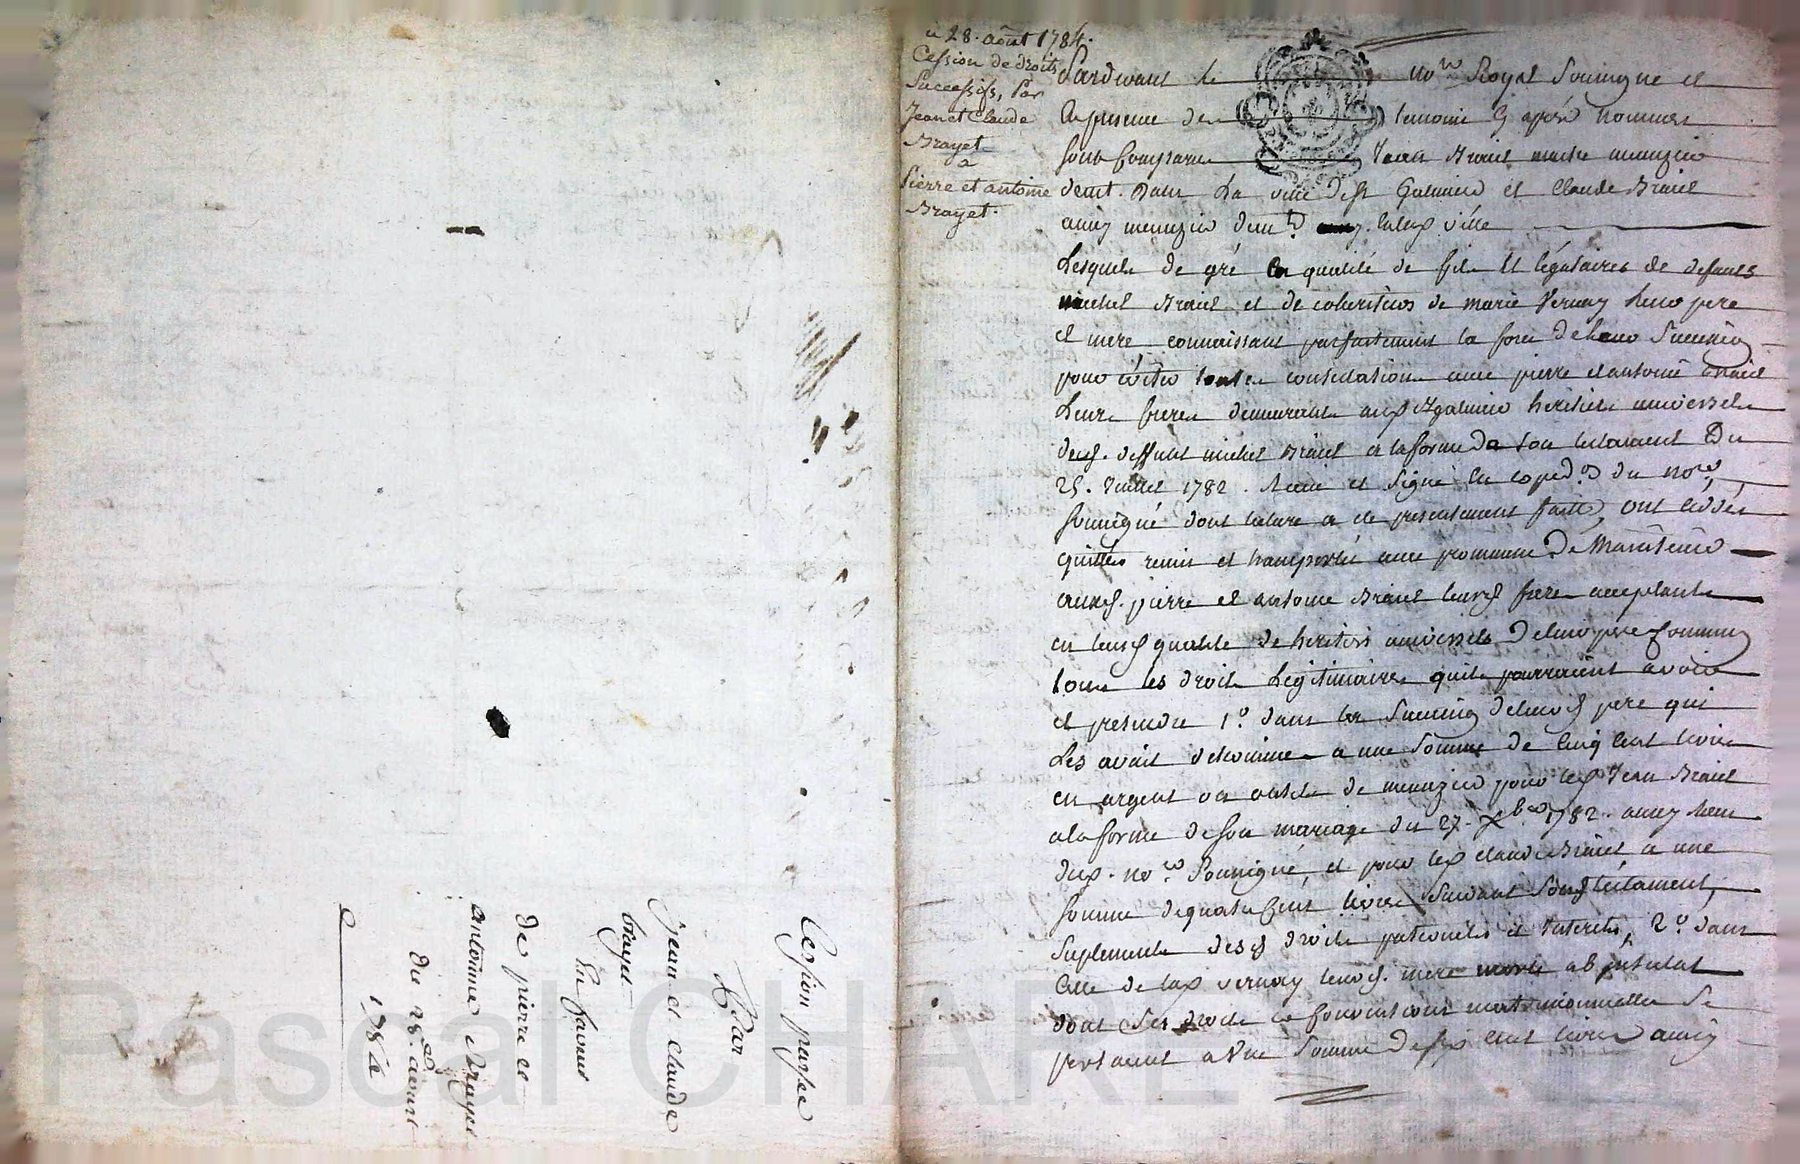 Cession passée
Par
jean et claude
brayet
En faveur
de pierre et
antoine Brayet
du 28 aoust
1784
du 28. août 1784.
Cession de droits
Successifs, Par
Jean et Claude
Brayet
à
Pierre et antoine
Brayet.
Pardevant le no.re Royal Soussigné et
En presence des temoins cy après nommés
sont comparus Jean Braiet maitre menuzier
demt. dans La ville de st Galmier et Claude Braiet
aussy menuzier demt. ville
Lesquels de gré en qualité de fils et légataires de defunts
michel Braiet et de coheritiers de marie Vernay leurs pere
et mere connaissant parfaitement la force de leurs Succession
pour éviter toutes contestations avec pierre et antoine Braiet
Leurs freres demeurants heritiers universels
dud. deffunt michel Braiet a la forme de son testament du
25. Juillet 1782. Recu et signé du no.re
soussigné dont lecture a ete presentement faitte, ont cédé
quitté remis et transporté avec promesse de Maintenir
auxd. pierre et antoine Braiet leursd freres acceptants
en leursd qualité de heritiers universels de leur pere commun
tous les droits Légitimaires quils pourraient avoir
et pretendre 1.o dans la Succession de leurd pere qui
Les avait determinés a une Somme de cinq cent livres
en argent ou outils de menuzier pour led Jean Braiet
a la forme de son mariage du 27. Xbre 1782. aussy Recu
dud. no.re Soussigné, et pour led claude Braiet a une
somme de quatre cent livres suivant sond testament,
suplements desd droits paternels et Interets, 2.o dans
Celle de lad vernay leurd. mere morte ab intestat
dont ses droits et conventions matrimonialles se
portaient a Une Somme de six cent livres aussy
Pascal CHAR